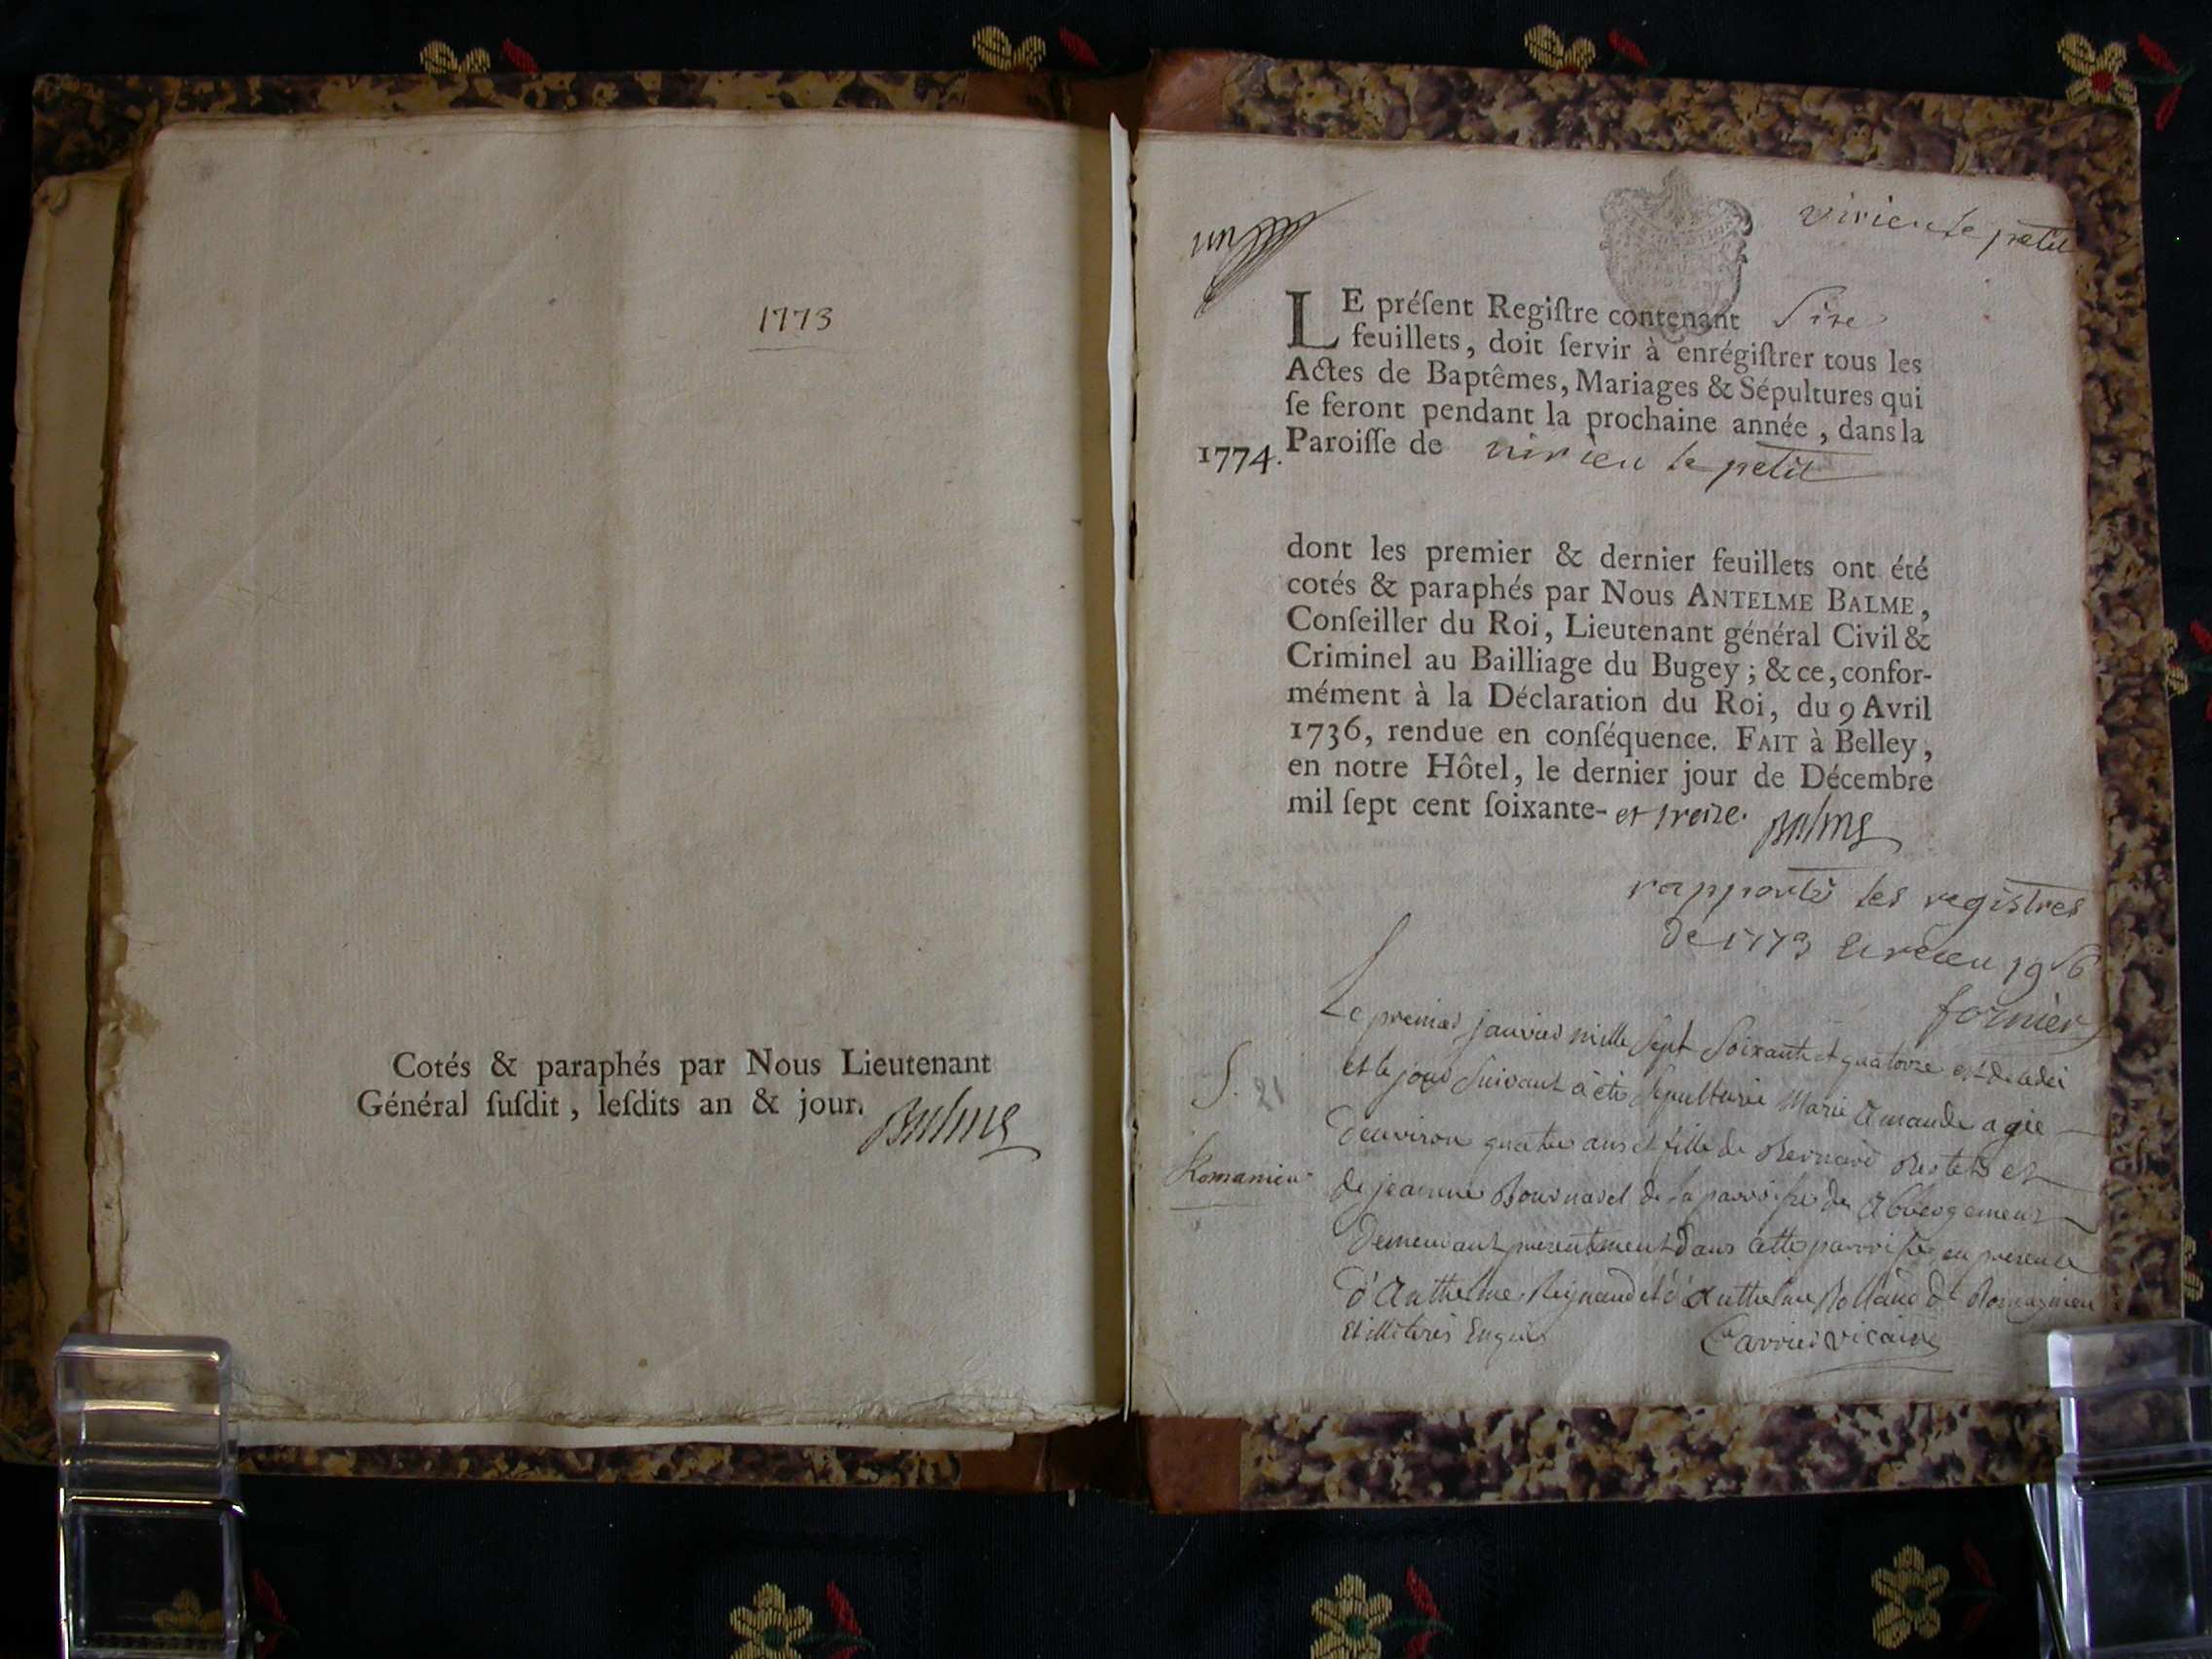 1773
Cotés & paraphés par Nous Lieutenant
Général ſuſdit, leſdits an & jour.
Balme
un
virieu le petit
LE préſent Regiſtre contenant Six
feuillets, doit ſervir à enrégiſtrer tous les
Actes de Baptêmes, Mariages & Sépultures qui
ſe feront pendant la prochaine année, dans la
1774. Paroiſſe de virieu le petit
dont les premier & dernier feuillets ont été
cotés & paraphés par Nous ANTELME BALME,
Conſeiller du Roi, Lieutenant général Civil &
Criminel au Bailliage du Bugey; & ce, confor-
mément à la Déclaration du Roi, du 9 Avril
1736, rendue en conſéquence. FAIT à Belley,
en notre Hôtel, le dernier jour de Décembre
mil ſept cent ſoixante- et treize. Balme
rapporté les registres
de 1773 et reçeu
fornier
Le premier janvier mille Sept Soixante et quatorze est decedéé
S. 21
et le jour Suivant à été Sepulturée Marie Amande agée
d'environ quatre ans et fille de Bernard et
Romanieu
de jeanne de la parroisse de
demeurant presentement dans cette parroisse en presence
d'Anthelme Reynaud et d'Anthelme Rolland de Romagnieu
et illiterés Enquis Carrier vicaire